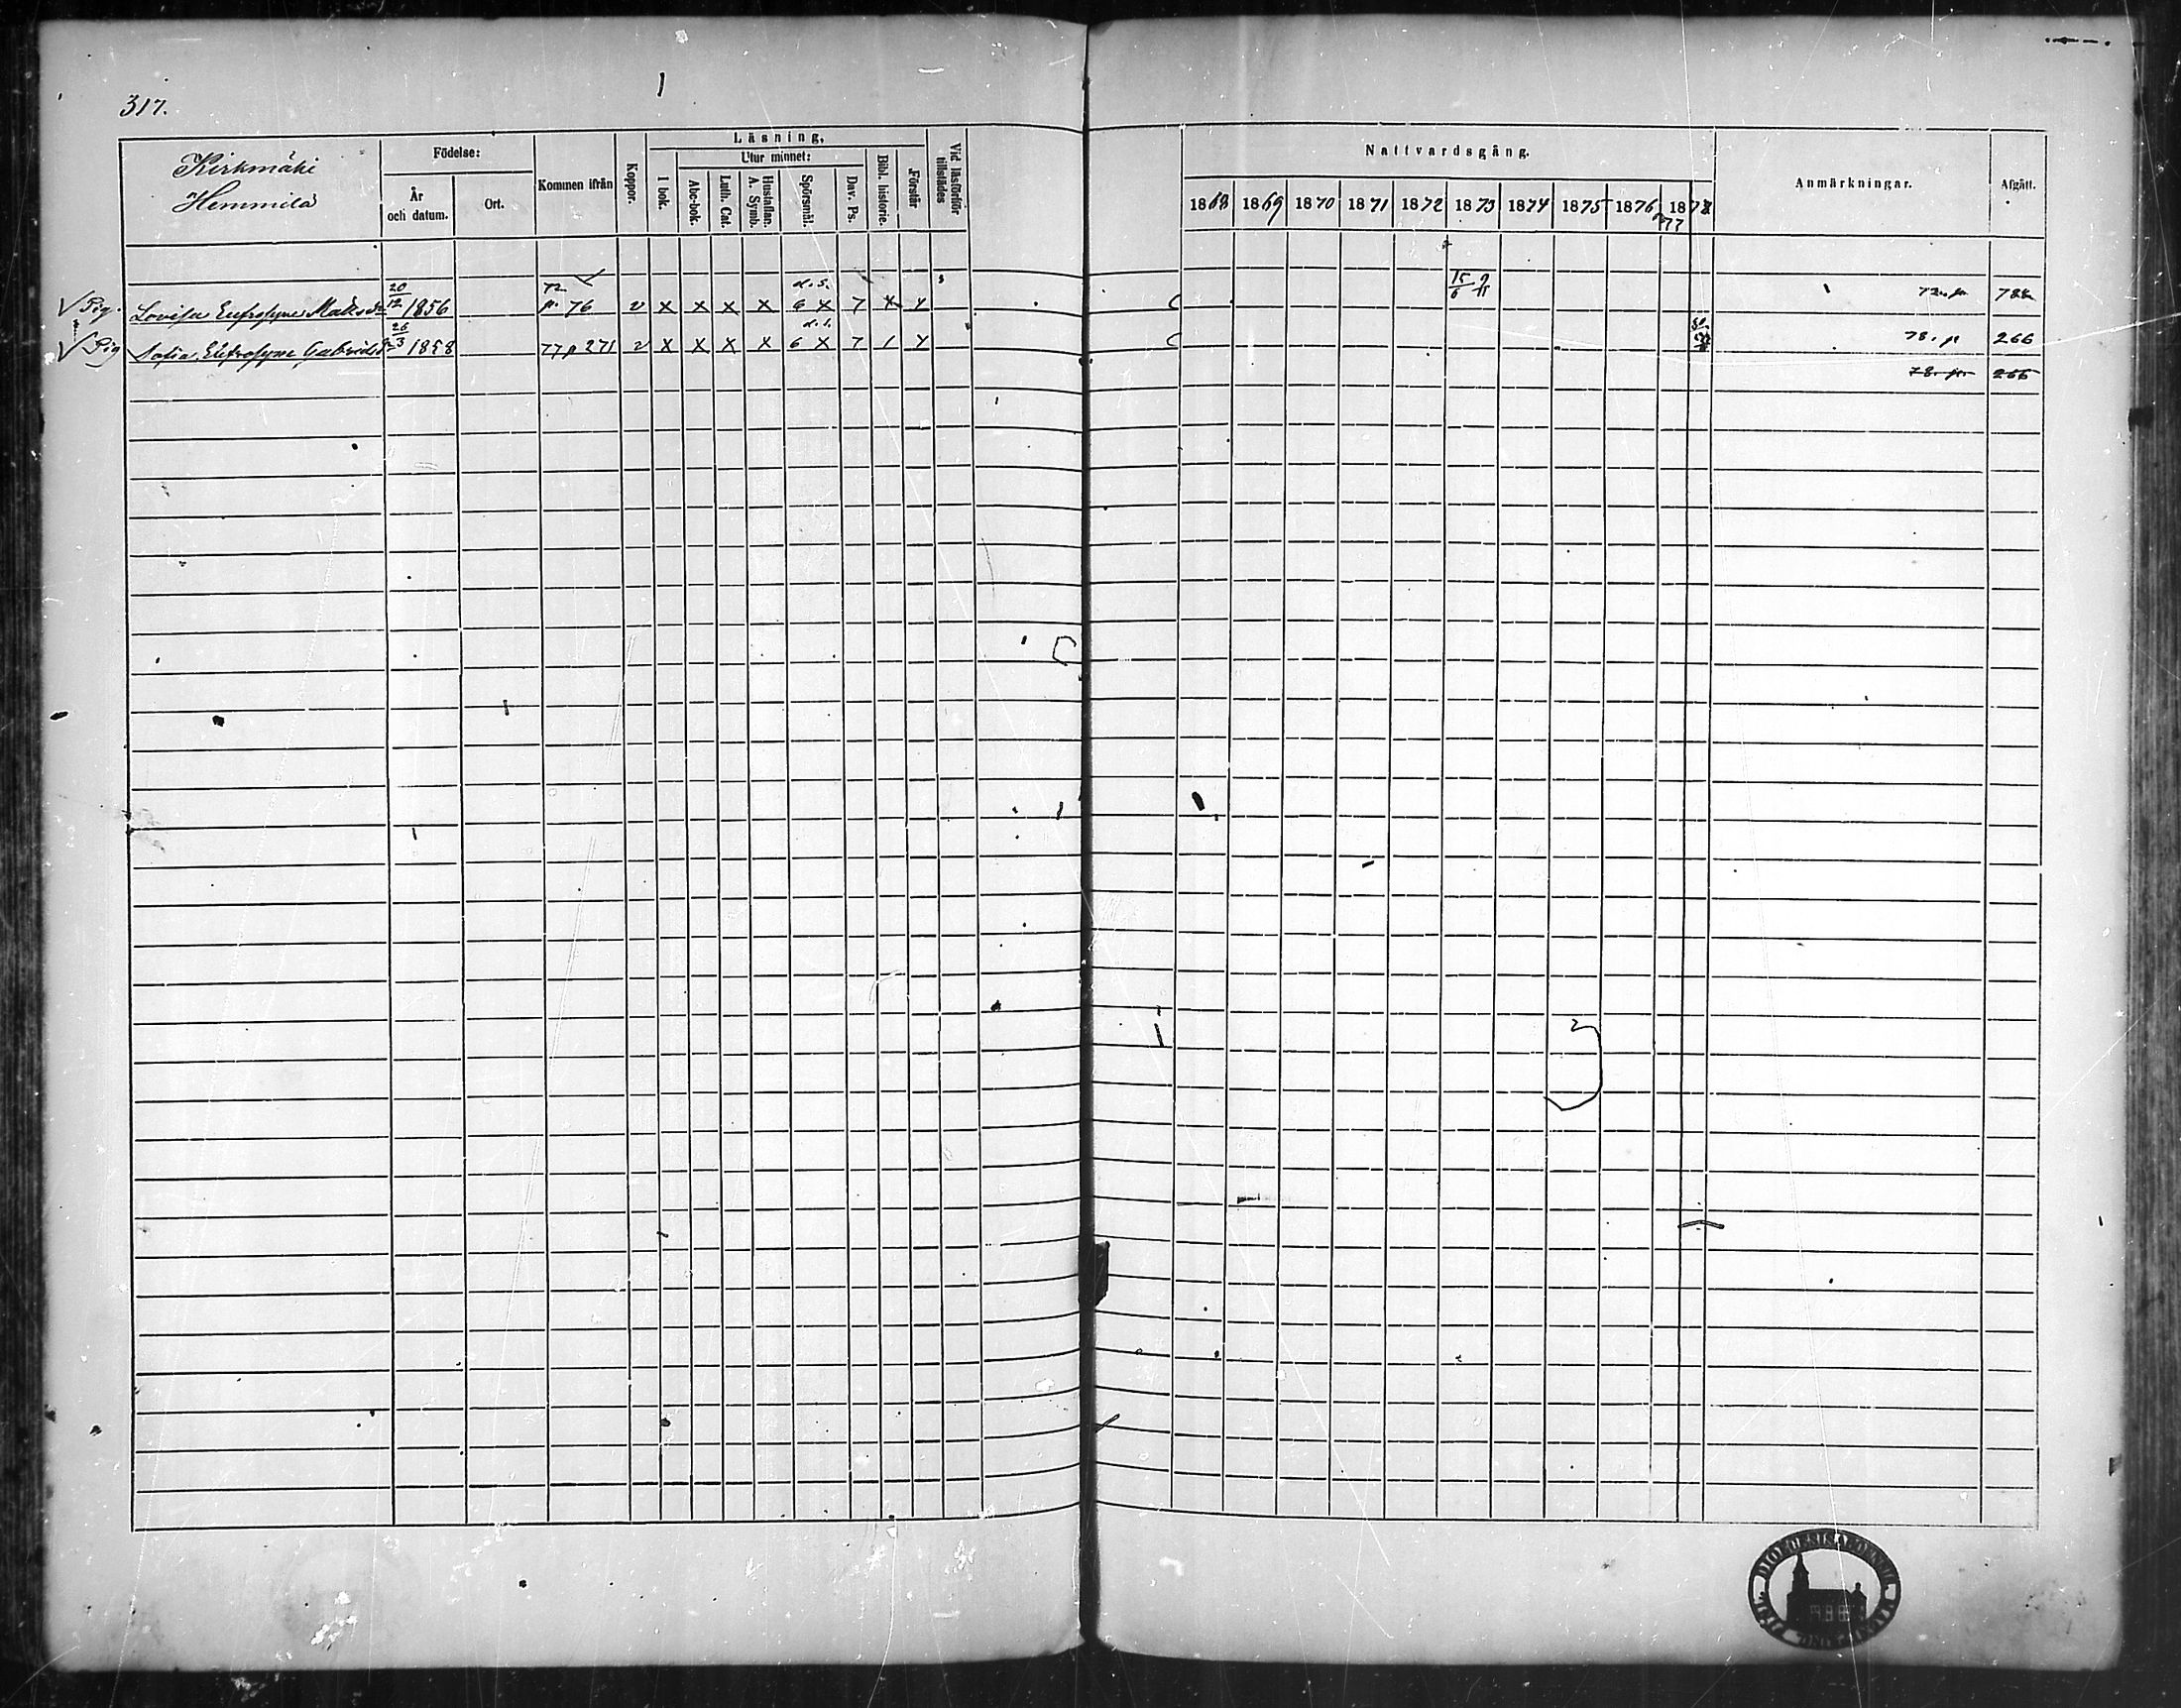 317.
Kirkmäki
Hemmilä
Födelse:
År
och datum.
Ort.
Kommen ifrån
Koppor.
Läsning,
I bok.
Utur minnet:
Abc-bok.
Luth. Cat.
Hustaflan.
A. Symb.
Spörsmål.
Dav. Ps.
Bibl. historie.
Förstår
Vid läsförhör
tillstädes
Nattvardsgång.
1868 1869 1870 1871 1872 1873 1874 1875 1876 1878
77
Anmärkningar.
Afgått.
√ Pig. Lovisa Eufrosyne 20/12 1856 72 p. 76 v X X X X d.s. 6 X 7 X Y C 15/6 9/11
√ Pig Sofia Eufrosyne Gabrielsd 1858 77 p 271 v X X X X d.s. 6 X 7 1 Y C 78. p 266
78. p 266